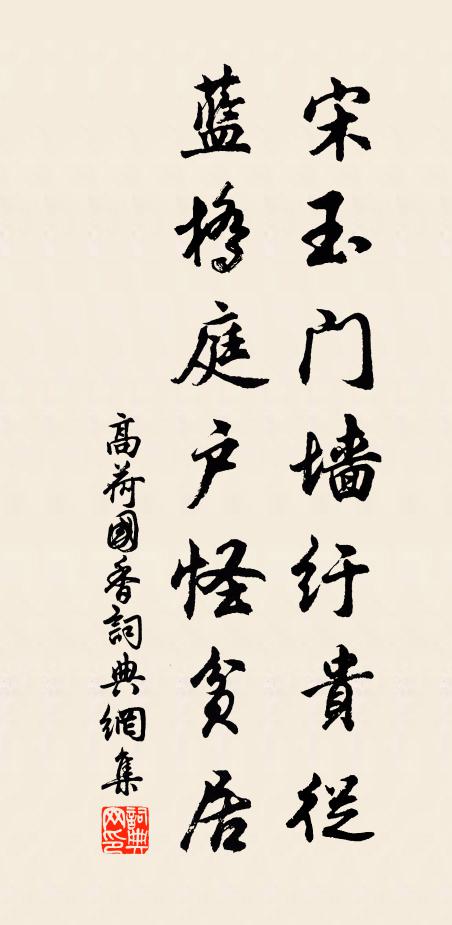 宋玉门墙纡貴從
藍橋庭户怪貧居
高荷國香詞典網集
詞典网印